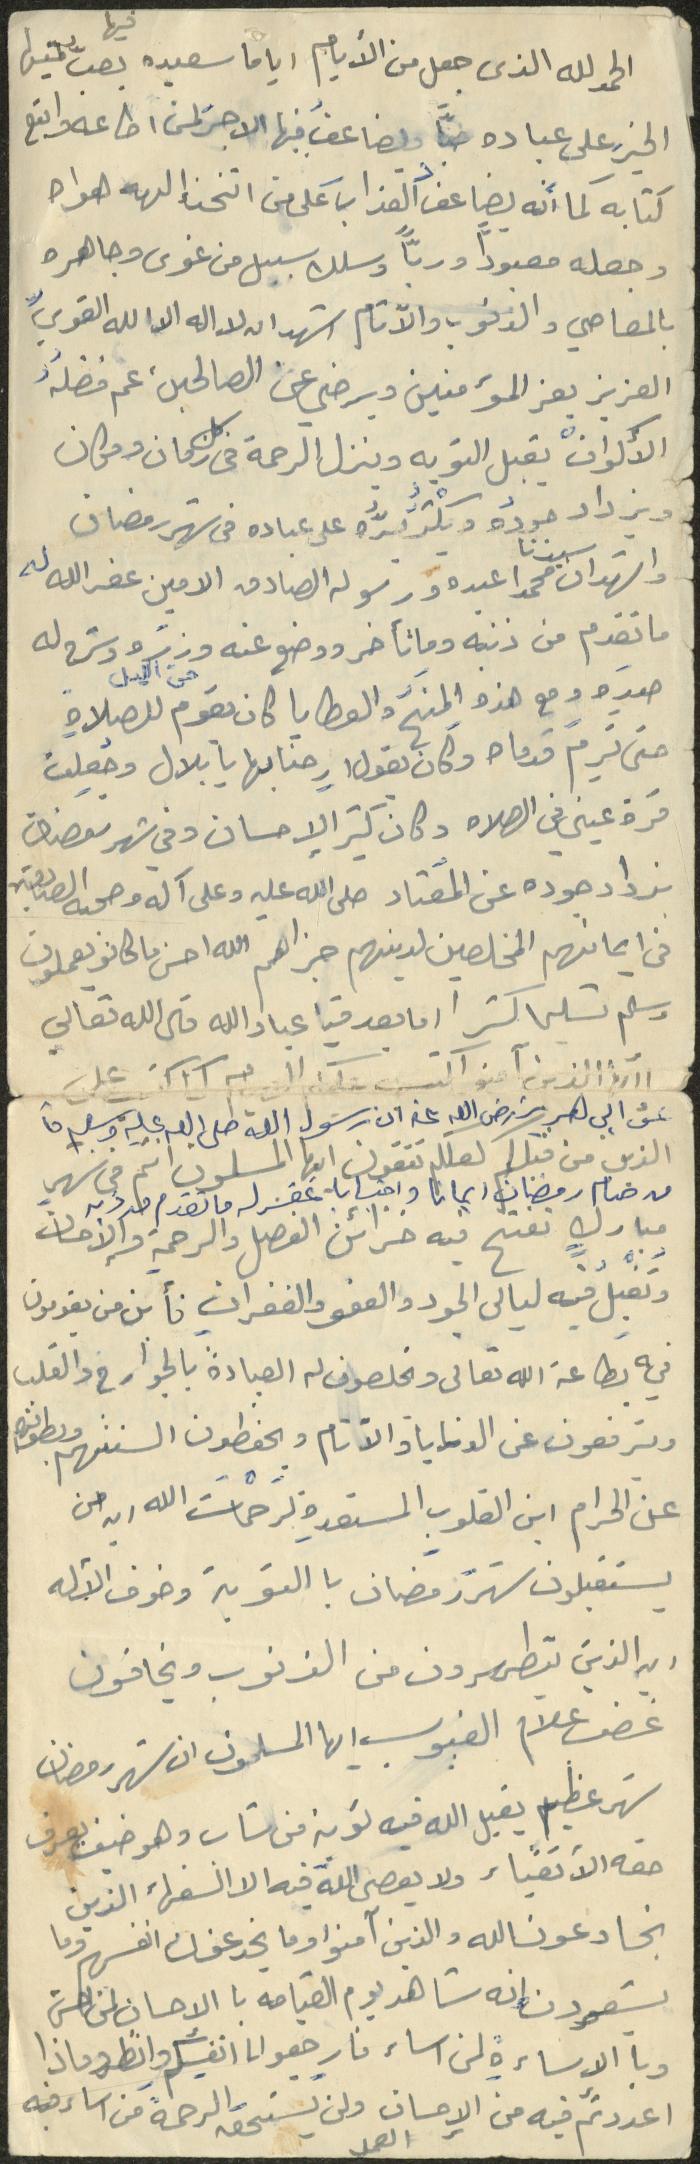 الحمد لله الذى جعل من الأيام اياما سعيده يصب فيها
الخير على عباده صبًّا ويضاعفُ فيها الاجر لمن اطاعه واتبع
كتابه كما أنه يضاعف العذاب على من اتخذ الهه هواه
وجعله معبودًا وربًّا وسلك سبيل من غوى وجاهره
بالمعاصي والذنوب والآثام اشهد ان لا اله الا الله القويُّ
العزيز يعز المؤمنين ويرضي عن الصالحين عم فضلُهُ
الأكوانْ يقبل التوبه وينزل الرحمة فى كل زمان ومكان
ويزداد جودُه ويكْثُرُ بِرُّه على عباده فى شهر رمضان
واشهد ان سيدنا محمدا عبده ورسوله الصادق الامين غفر الله له
ما تقدم من ذنبه وما تأخر ووضع عنه وزره وشرح له
صدره ومع هذه المنحِ والعطايا كان يقوم من الليل للصلاةِ
حتى تَرِمَ قدماه وكان يقول ارحنا بها يا بلال وجُعِلت
قرة عيني في الصلاه وكان كثير الإحسان وفي شهر رمضان
يزداد جوده عن المُعتاد صلى الله عليه وعلى آله وصحبه الصادقين
فى ايمانهم المخلصين لدينهم جزاهم الله احسن ما كانو يعملون
وسلم تسليما كثيرا اما بعد فيا عباد الله قال الله تعالي
الذين آمنو كتب عليكم الصيام كما كتب على
عن ابي هريره رضي الله عنه ان رسول الله صلى الله عليه وسلم قا
الذين من قبلكم لعلكم تتقون ايها المسلمون انتم في شهرٍ
من صام رمضان ايمانا واحتسابا غفر له ما تقدم من ذنبه
مباركٍ تفتح فيه خزائن الفضل والرحمة والاحسان
وتُقْبِلُ فيه ليالى الجود والعفو والغفران فأين من يقومون
فيه بطاعة الله تعالى ويخلصون له العبادة بالجوارح والقلب
ويترفعون عن الدنايا والآثام ويحفظون السنتهم وبطونهم
عن الحرام اين القلوب المستعدة لرَحَمات الله اين من
يستقبلون شهر رمضان با التوبة وخوف الآله
اين الذين يتطهرون من الذنوب ويخافون
غضب علام الغيوب ايها المسلمون ان شهر رمضان
شهر عظيم يقبل الله فيه توبة من تاب وهو ضيف يعرف
حقه الأتقياء ولا يعصى اللهَ فيه الا السفهاء الذين
يخادعون الله والذين آمنوا وما يخدعون انفسهم وما
يشعرون انه شاهد يوم القيامه با الاحسان لمن احسن
وبا الإساءةِ لمن اساء فارجعو الا انفسكم وانظرو ماذا
اعددتم فيه من الإحسان ولن يستحق الرحمة من اساء فيه
العمل